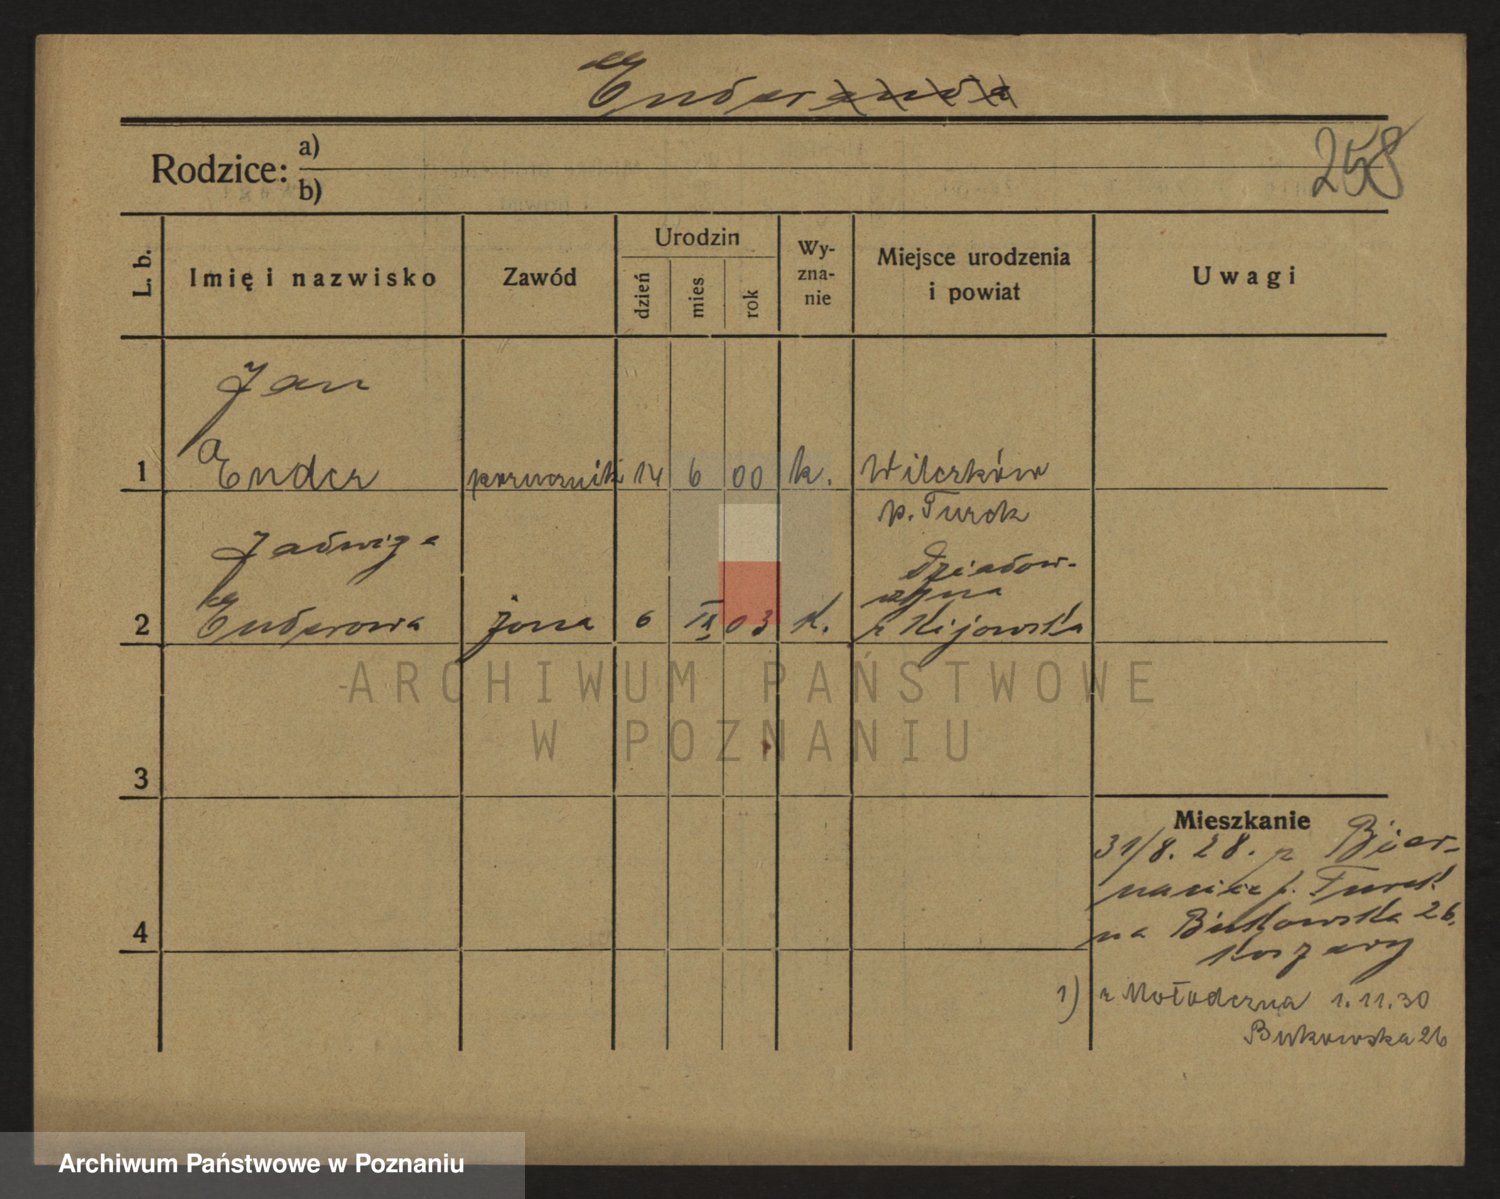 Ender
258
Rodzice:
a)
b)
L. b.
Imię i nazwisko
Zawód
Urodzin
dzień
mies
rok
Wy-
zna-
nie
Miejsce urodzenia
i powiat
Uwagi
Jan
1 Ender porucznik 14 6 00 k. Wilczków
p. Turek
Jadwiga
2 Enderowa żona 6 IX 03 k.
Kijowska
3
4
Mieszkanie
31/8. 28. z Bier-
nacice p. Turek
na Bukowska 26.
Koszary
1) z Mołodeczna 1.11.30
Bukowska 26
ARCHIWUM PAŃSTWOWE
W POZNANIU
Archiwum Państwowe w Poznaniu